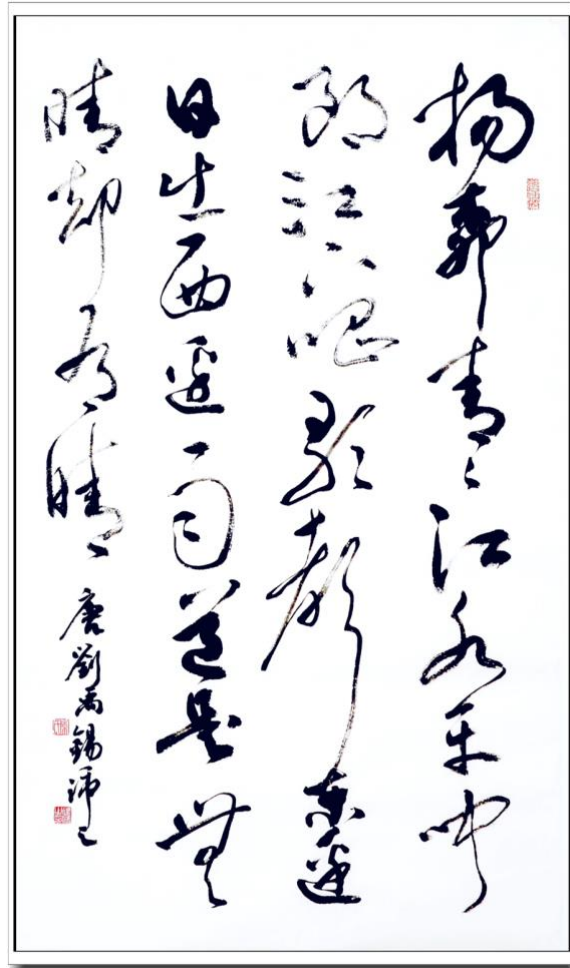 楊柳青々江水平聞
郎江上唱歌聲東邊
日出西邊雨道是無
晴却有晴
唐劉禹錫